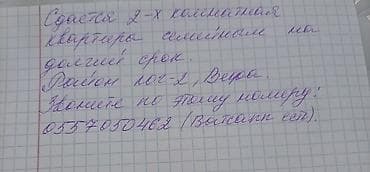 Сдается 2-х комнатная
квартира семейным на
долгий срок.
Район юг-2, Вефа.
Звоните по этому номеру:
0557050462 (Ватапп есть).